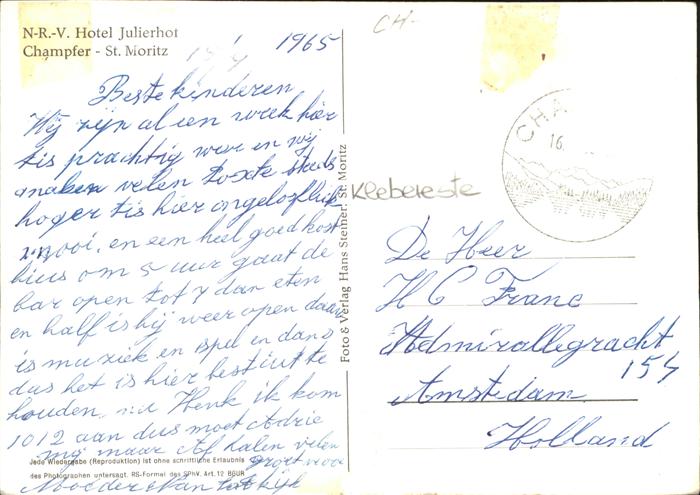 N-R.-V. Hotel Julierhof
Champfer - St. Moritz
1965
CH-
Beste kinderen
Wij zijn al een week hier
tis prachtig weer en wij
maken velen toste steds
hoger tis hier ongelooflik
mooi, en een heel goed kost
huis om 5 uur gaat de
bar open tot 7 dan eten
en half is hij weer open daar
is muziek en spel en dans
dus het is hier best uit te
houden, nu Henk ik kom
10 12 aan dus moet
mij maar af halen velen
groet voor
Moeder
Foto & Verlag Hans Steiner, St. Moritz
Klebereste
CHA
16.
De Heer
H C Franc
Admirallegracht
154
Amstedam
Holland
Jede Wiedergabe (Reproduktion) ist ohne schriftliche Erlaubnis
des Photographen untersagt. RS-Formel des SPhV. Art. 12 BGUR